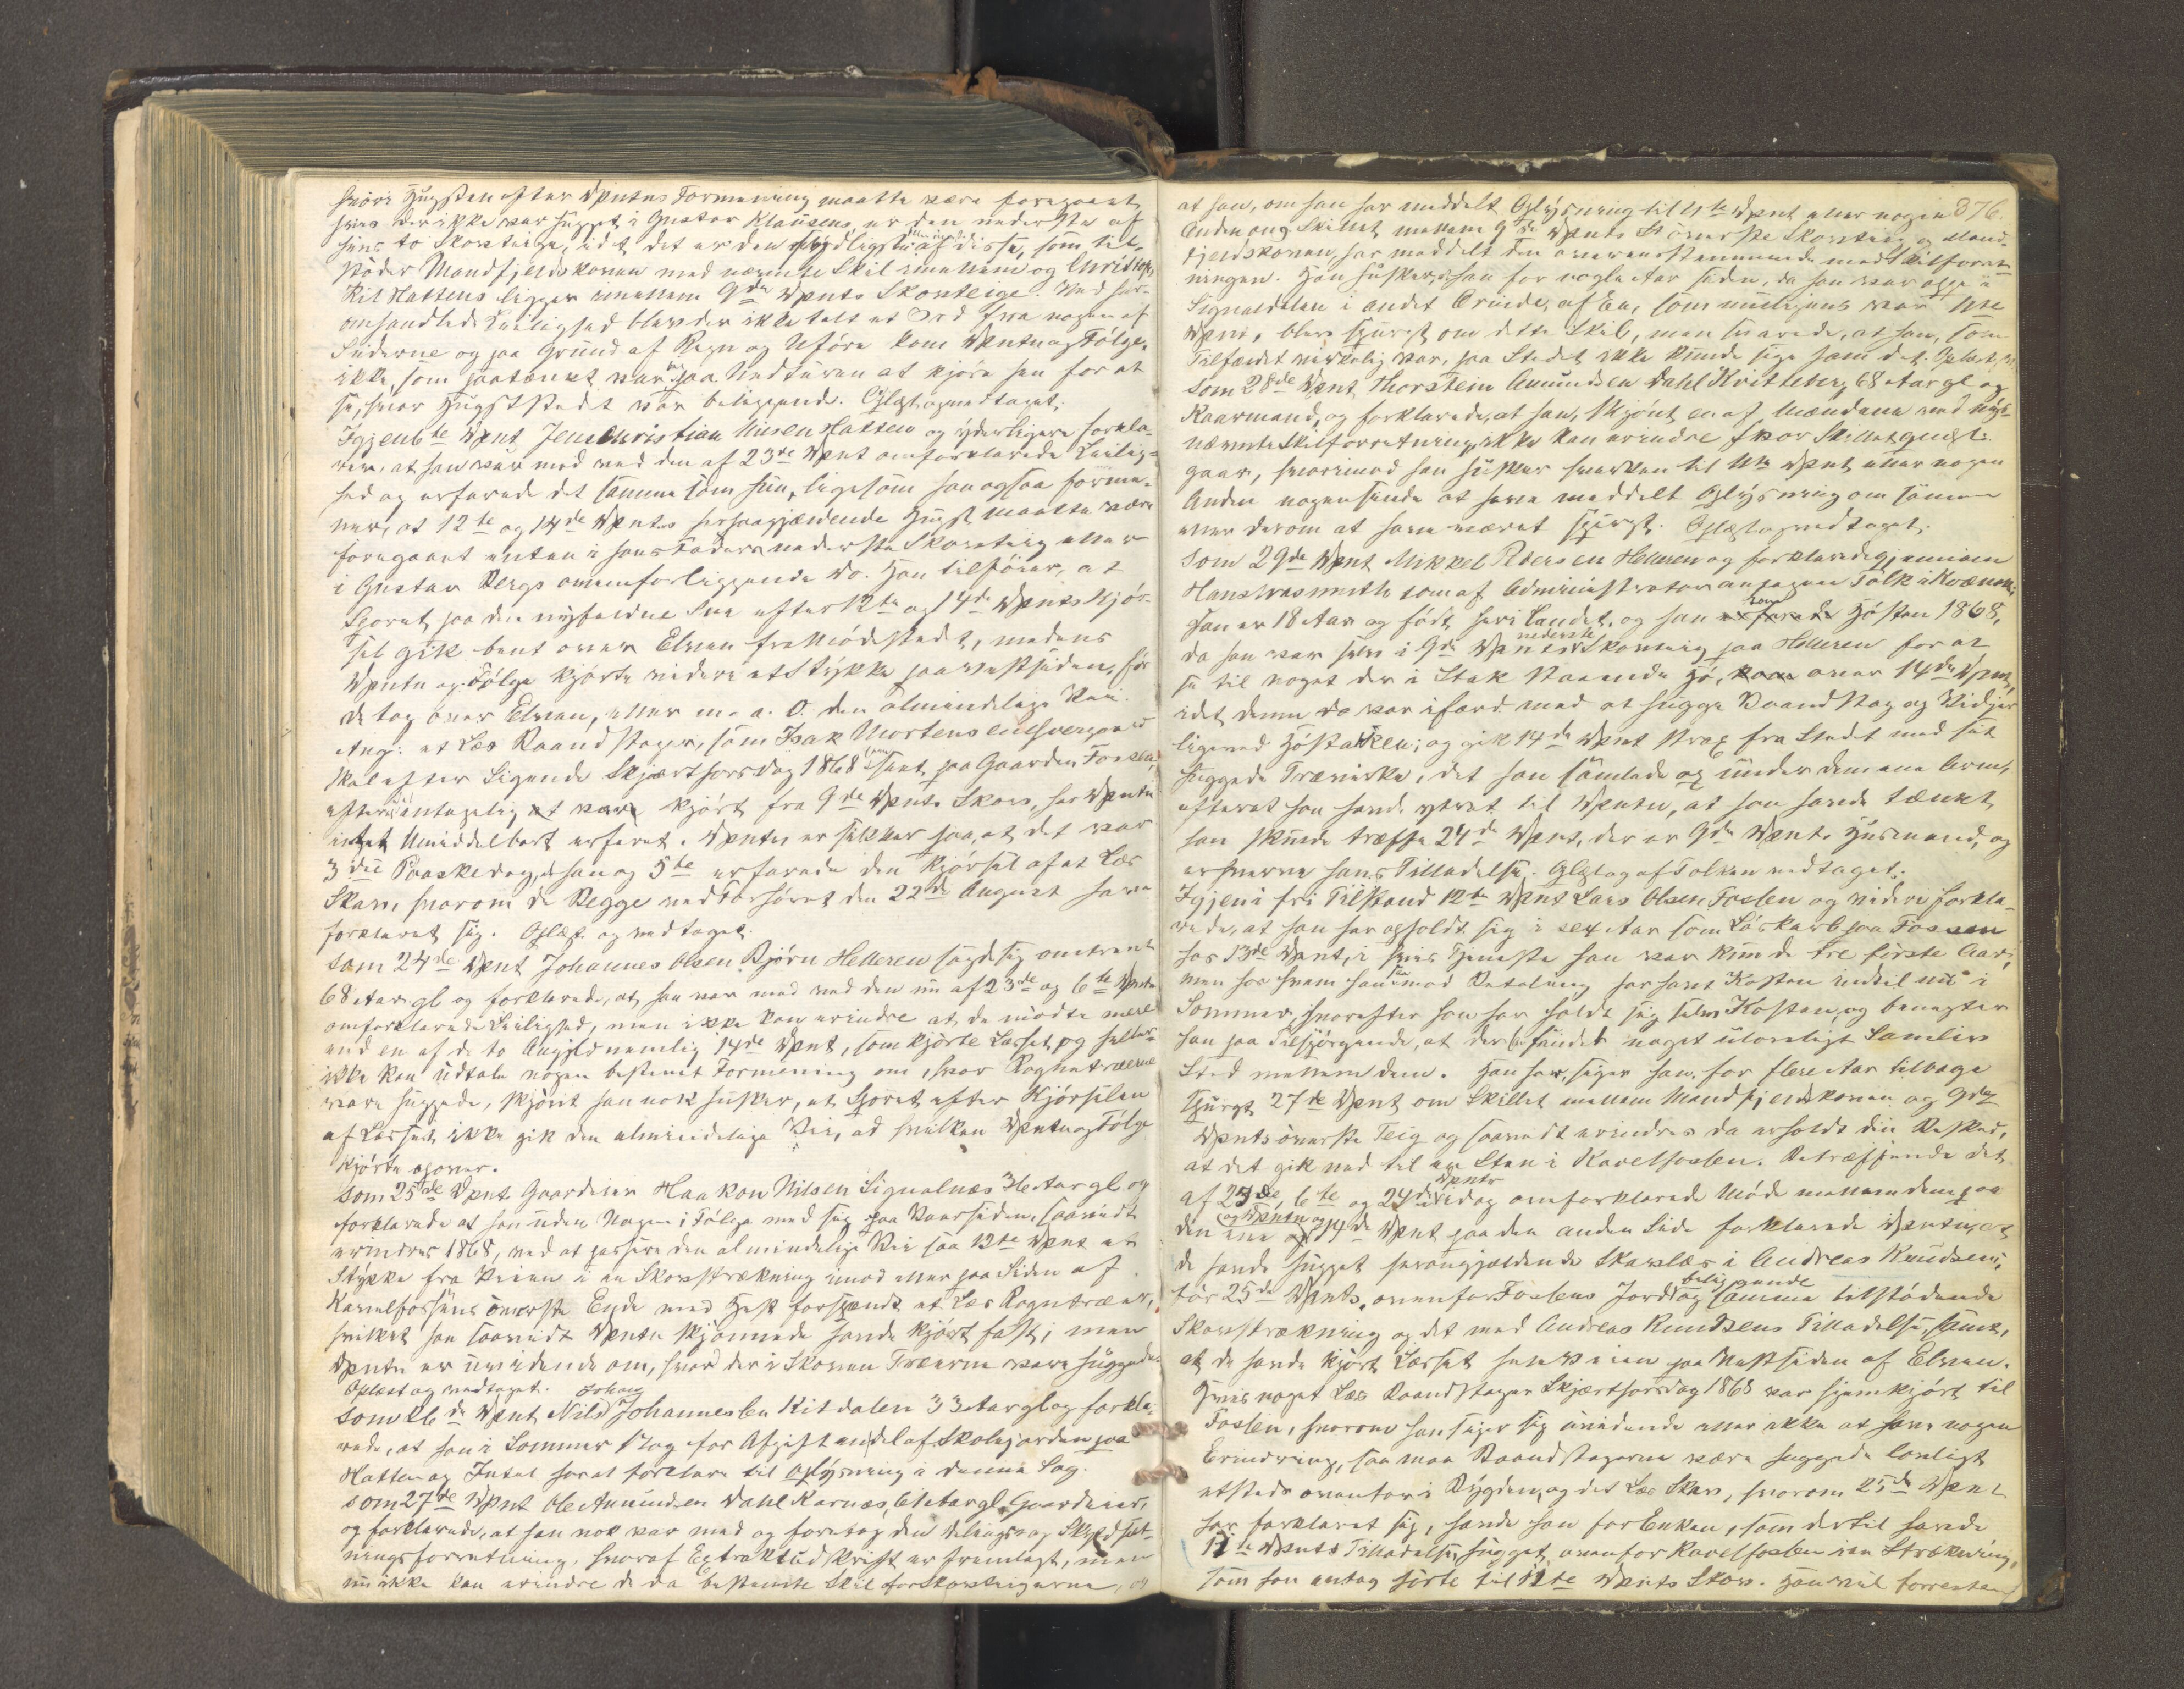 hvori Hugsten efter Vpntns Formening maatte være foregaaet,
hvis der ikke var hugget i Gustav Klausens, er den nederste af
hans to Skovteige, idet det er den sydligste af disse, som til-
støder Mandfjeldskoven med nævnte Skil imellem og Christoph
Kil Hattens ligger imellem 9de Vpnts Skovteige. Ved her-
omhandlede Leilighed blev der ikke talt et Ord fra nogen af
Siderne og paa Grund af Regn og Uføre kom Vpntn og Følge
ikke, som paatænkt var, paa Nedturen at kjøre hen for at
se, hvor Hugststedet var beliggende. Oplæst og vedtaget.
Igjen 6te Vpnt Jens Christian Nilsen Hatten og yderligere forkla-
rer, at han var med ved den af 23de Vpnt omforklarede Leilig-
hed og erfarede det samme som hun, ligesom han ogsaa forme-
ner, at 12te og 14de Vpnts herhengjældende Hugst maatte være
foregaaet enten i hans Faders nederste Skovteig eller
i Gustav Bergs ovenforliggende do. Han tilføier, at
Sporet paa den nyfaldne Sne efter 12te og 14de Vpnts Kjør-
sel gik bent over Elven fra Mødestedet, medens
Vpntn og Følge kjørte videre et Stykke paa Vestsiden, før
de tog over Elven, eller m. a. O. den almindelige Vei.
Ang. et Læs Baandstager, som Isak Mortensen
skal efter Sigende Skjærthorsdag 1868 have seet paa Gaarden Fossen,
efter antagelig at være kjørt fra 9de Vpnts Skov, har Vpntn
intet Umiddelbart erfaret. Vpntn er sikker paa, at det var
3die Paaskedag, han og 5te erfarede den Kjørsel af et Læs
Skav, hvorom de Begge ved Forhøret den 22de August have
forklaret sig. Oplæst og vedtaget.
Som 24de Vpnt Johannes Olsen Bjørn Helleren sagde sig omtrent
68 Aar gl og forklarede, at han var med ved den nu af 23de og 6te Vpnt
omforklarede Leilighed, men ikke kan erindre at de mødte mere
end en af de to Angjældnemlig 14de Vpnt, som kjørte Læsset, og heller
ikke kan udtale nogen bestemt Formening om, hvor Rognetræerne
vare huggede, skjønt han nok husker, at Sporet efter Kjørselen
af Læsset ikke gik den almindelige Vei, ad hvilken Vpntn og Følge
kjørte ogover.
Som 25de Vpnt Gaardeier Haakon Nilsen Signalnæs 36 Aar gl og
forklarede at han uden Nogen i Følge med sig paa Vaarsiden, saavidt
erindres 1868, ved at passere den almindelige Vei saa 12te Vpnt et
Stykke fra Veien i en Skovstrækning imod eller paa Siden af
Kavelfossens øverste Ende med Hest forspændt et Læs Rognetræer,
hvilket han saavidt Vpntn skjønnede havde kjørt fast; men
Vpntn er uvidende om, hvor der i Skoven Træerne vare huggede.
Oplæst og vedtaget. Johan
Som 26de Vpnt Nils Johannesen Kitdalen 33 Aar gl og forkla-
rede, at han i Sommer slog for Afgift endel af Skolejorden paa
Hatten og Intet havde forklare til Oplysning i denne Sag.
Som 27de Vpnt Ole Amundsen Dahl Karnæs, 61 Aar gl, Gaardeier,
og forklarede, at han nok var med og foretog den Delings og Skyldsæt-
ningsforretning, hvoraf Extraktudskrift er fremlagt, men
nu ikke kan erindre de da bestemte Skil for Skovteigerne, og
376.
at han, om han har meddelt Oplysning til 11te Vpnt eller nogen
Anden ang Skillet mellem 9de Vpnts øverste Skovteig og Mand-
fjeldskoven, har meddelt den overensstemmende med Skilforret-
ningen. Han husker, at han for nogle Aar siden, da han var oppe i
Signaldalen i andet Ærinde, af En, som muligens var 11te
Vpnt, blev spurgt om dette Skil, men svarede, at han, som
Tilfældet virkelig var, paa Stedet ikke kunde sige ham det. Oplæst, v.
Som 28de Vpnt Thorstein Amundsen Dahl Kvitteberg 68 Aar gl og
Kaarmand, og forklarede, at han, skjønt en af Mændene ved nys-
nævnte Skilforretning, ikke kan erindre hvor Skillet gaar,
hvorimod han husker hverken til 11te Vpnt eller nogen
Anden nogensinde at have meddelt Oplysning om samme
eller derom at have været spurgt. Oplæst og vedtaget.
Som 29de Vpnt Mikkel Pedersen Helleren og forklarede gjennem
Hans Wasmuth som af Administrator antagen Tolk i Kvænsk,
Han er 18 Aar og født her i Landet, og han kom Høsten 1868,
da han var selv i 9de Vpnts nederste Skovteig paa Helleren for at
se til noget der i Stak staaende Hø, over 14de Vpnt,
idet denne da var ifærd med at hugge Baandstag og Vidjer
ligeved Høstakken; og gik 14de Vpnt strax fra Stedet med sit
huggede Trævirke, det han samlede op under den ene Arm,
efterat han havde ytret til Vpntn, at han havde tænkt
han skulde træffe 24de Vpnt, der er 9de Vpnts Husmand, og
erhverve hans Tilladelse. Oplæst og af Tolken vedtaget.
Igjen i fri Tilstand 12te Vpnt Lars Olsen Fossen og videre forkla-
rede, at han har opholdt sig i sex Aar som Løskarl paa Fossen
hos 13de Vpnt, i hvis Tjeneste han var kun de tre første Aar,
men hos hvem han mod Betaling har havt Kosten indtil nu i
Sommer, hvorefter han har holdt sig selv Kosten, og benegter
han paa Tilspørgende, at der har fundet noget ulovligt Samliv
Sted mellem dem. Han har, siger han, for flere Aar tilbage
spurgt 27de Vpnt om Skillet mellem Mandfjeldskoven og 9de
Vpnts øverste Teig og saavidt erindres da erholdt den Besked,
at det gik ned til en Sten i Kavelfossen. Betræffende det
af 23de, 6te og 24de Vpnts idag omforklarede Møde mellem dem paa
den ene og Vpntn og 14de Vpnt paa den anden Side forklarede Vpntn, at
de havde hugget herongjældende Skavlæs i Andreas Knudsens,
før 25de Vpnts, ovenfor Fossens Jord og samme tilstødende beliggende
Skovstrækning og det med Andreas Knudsens Tilladelse, samt,
at de havde kjørt Læsset hele Veien paa Vestsiden af Elven.
Hvis noget Læs Baandstager Skjærthorsdag 1868 var hjemkjørt til
Fossen, hvorom han siger sig uvidende eller ikke at have nogen
Erindring, saa maa Baandstagerne være huggede lovligt
etsteds ovenfor i Bygden, og det Læs Skav, hvorom 25de Vpnt
har forklaret sig, havde han for Enken, som dertil havde
11te Vpnts Tilladelse, hugget ovenfor Kavelfossen i en Strækning,
som han antog hørte til 11te Vpnts Skov. Han vil forresten